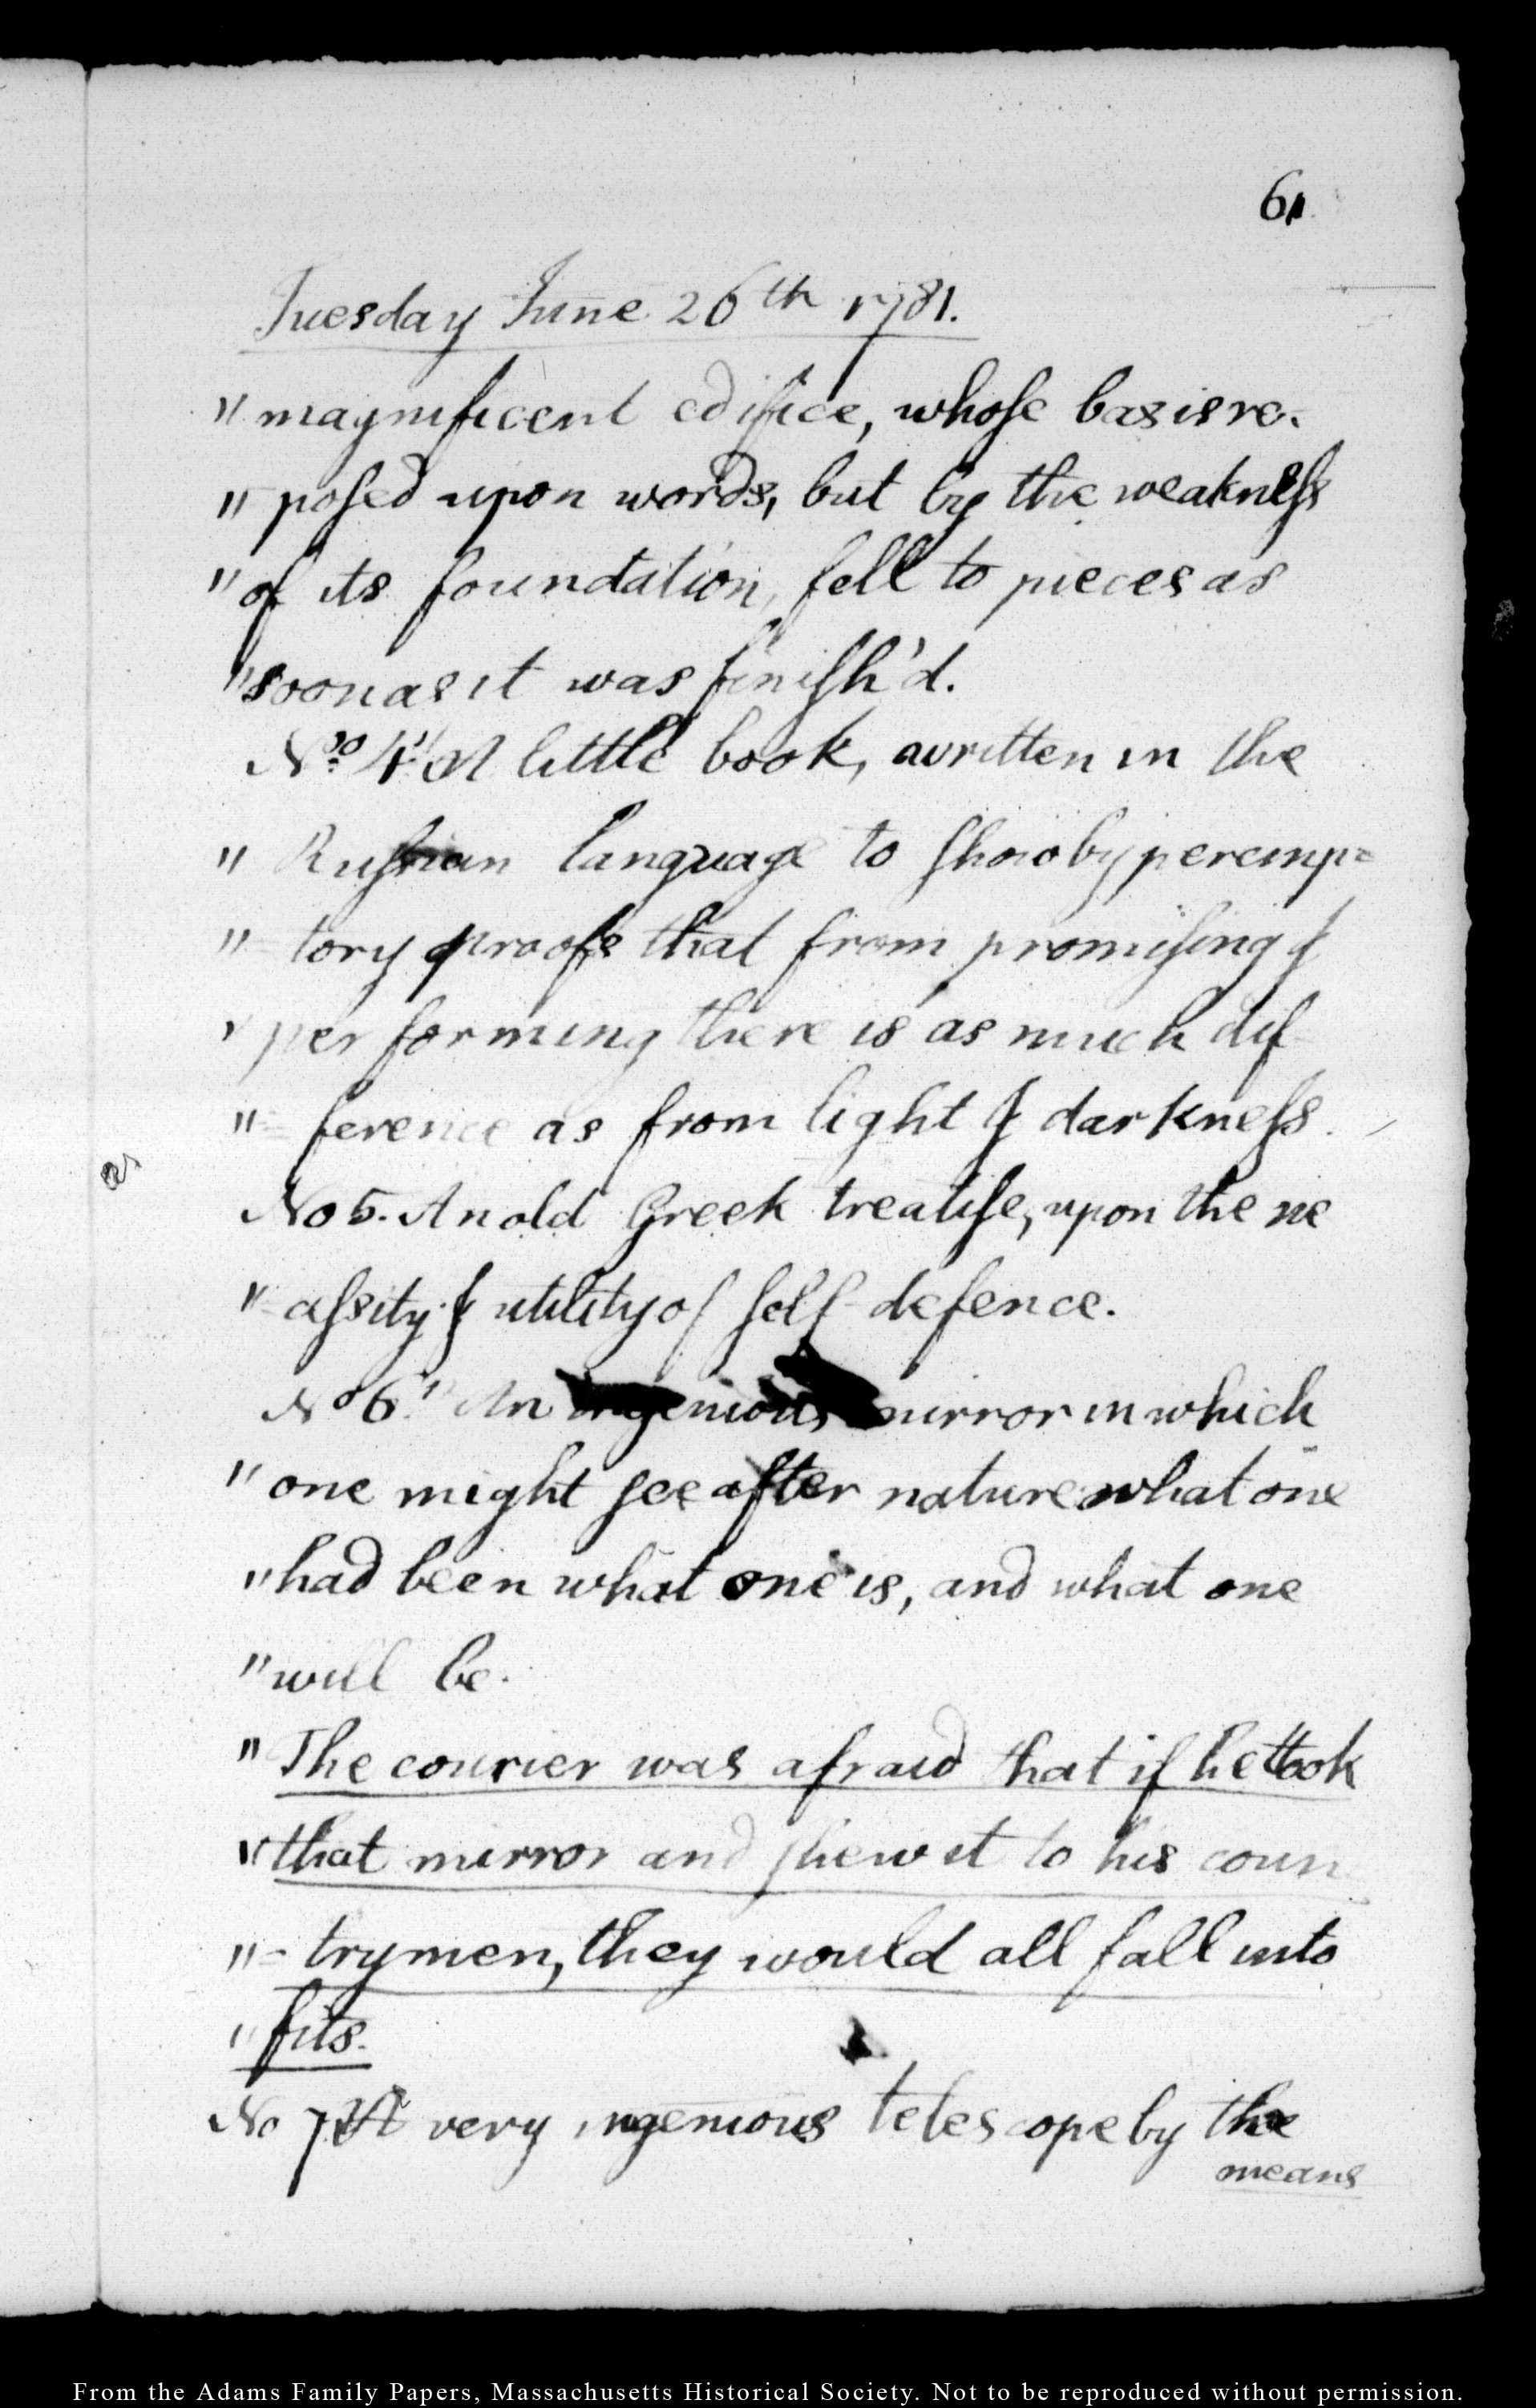 61
Tuesday June 26th 1781.
" magnificent edifice, whose basis re-
" posed upon words, but by the weakness
" of its foundation, fell to pieces as
" soon as it was finish'd.
No. 4 " A little book, written in the
" Russian language to show by peremp=
"= tory proofs that from promising &
" performing there is as much dif-
"= ference as from light & darkness.
No 5. An old Greek treatise, upon the ne
"= assity & utility of self-defence.
No 6. " An ingenious mirror in which
" one might see after nature what one
" had been what one is, and what one
" will be.
" The courier was afraid that if he took
" that mirror and shew it to his coun
"= trymen, they would all fall into
" fits.
No 7. " A very ingenious telescope by the
means
From the Adams Family Papers, Massachusetts Historical Society. Not to be reproduced without permission.